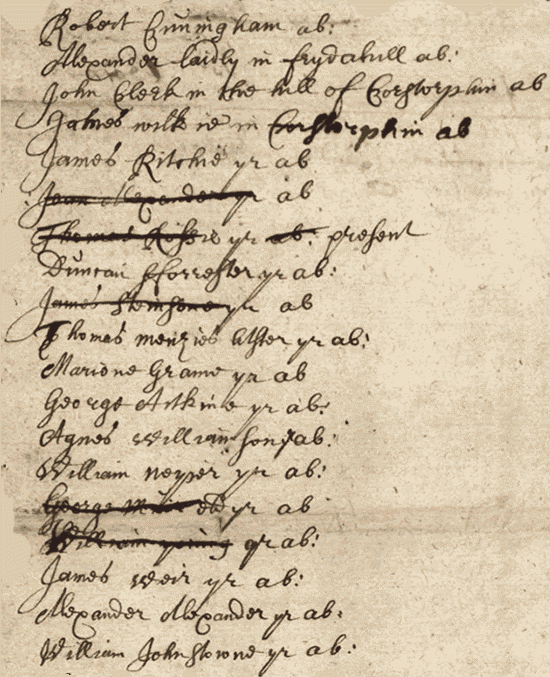 Robert Cuningham ab:
Alexander laidly in frydahill ab:
John Clerk in the hill of Corstorphin ab
James wilkie in Corstorphin ab
James Ritchie yr ab
Jean Alexander yr ab
Thomas yr ab: present
Duncan fforrester yr ab:
James Steinsone yr ab
Thomas menzies yr ab:
Marione Grame yr ab
George Aitkine yr ab:
Agnes williamson yr ab:
William neyper yr ab:
George yr ab
William young yr ab:
James weir yr ab:
Alexander Alexander yr ab:
William Johnstowne yr ab: